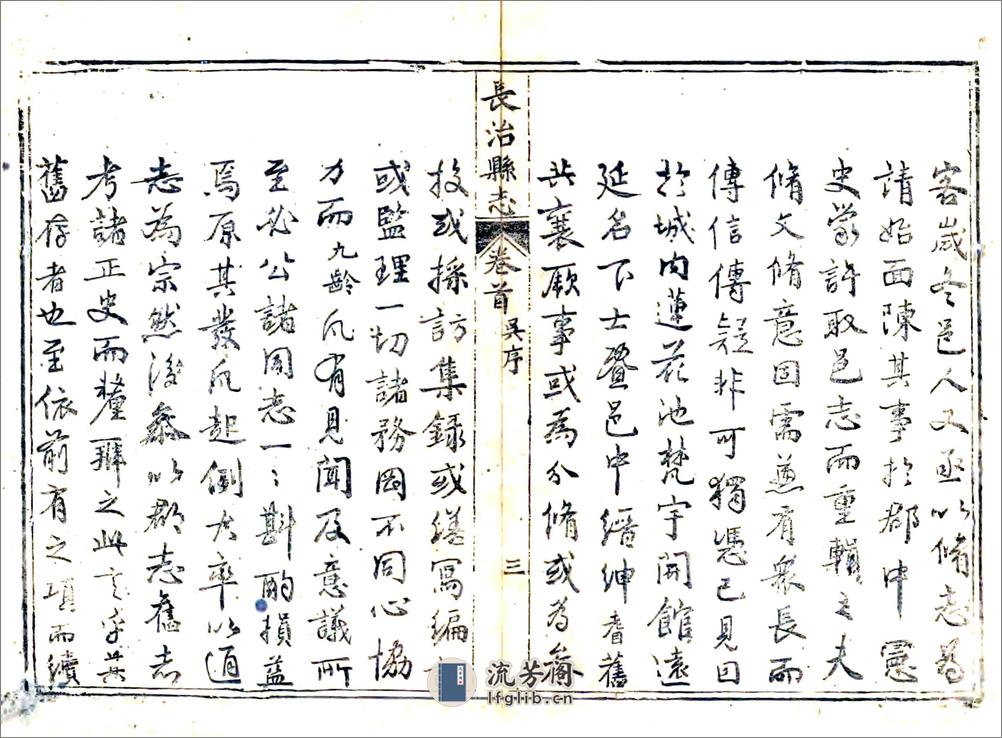 客歲冬邑人又亟以脩志為
請始面陳其事於郡中憲
史蒙許取邑志而重輯之夫
脩文脩意固需兼有衆長而
傳信傳疑非可獨憑己見因
於城內蓮花池梵宇開館遠
延名下士暨邑中縉紳耆舊
共襄厥事或為分脩或為參
長治縣志 卷首 吳序 三
校或採訪集錄或繕寫編
或監理一切諸務罔不同心協
力而九齡凡有見聞及意議所
至必公諸同志一々斟酌損益
焉原其發凡起例大率以通
志為宗然後參以郡志舊志
考諸正史而釐辨之此言乎其
舊存者也至依前有之項而續
流芳閣
lfglib.cn